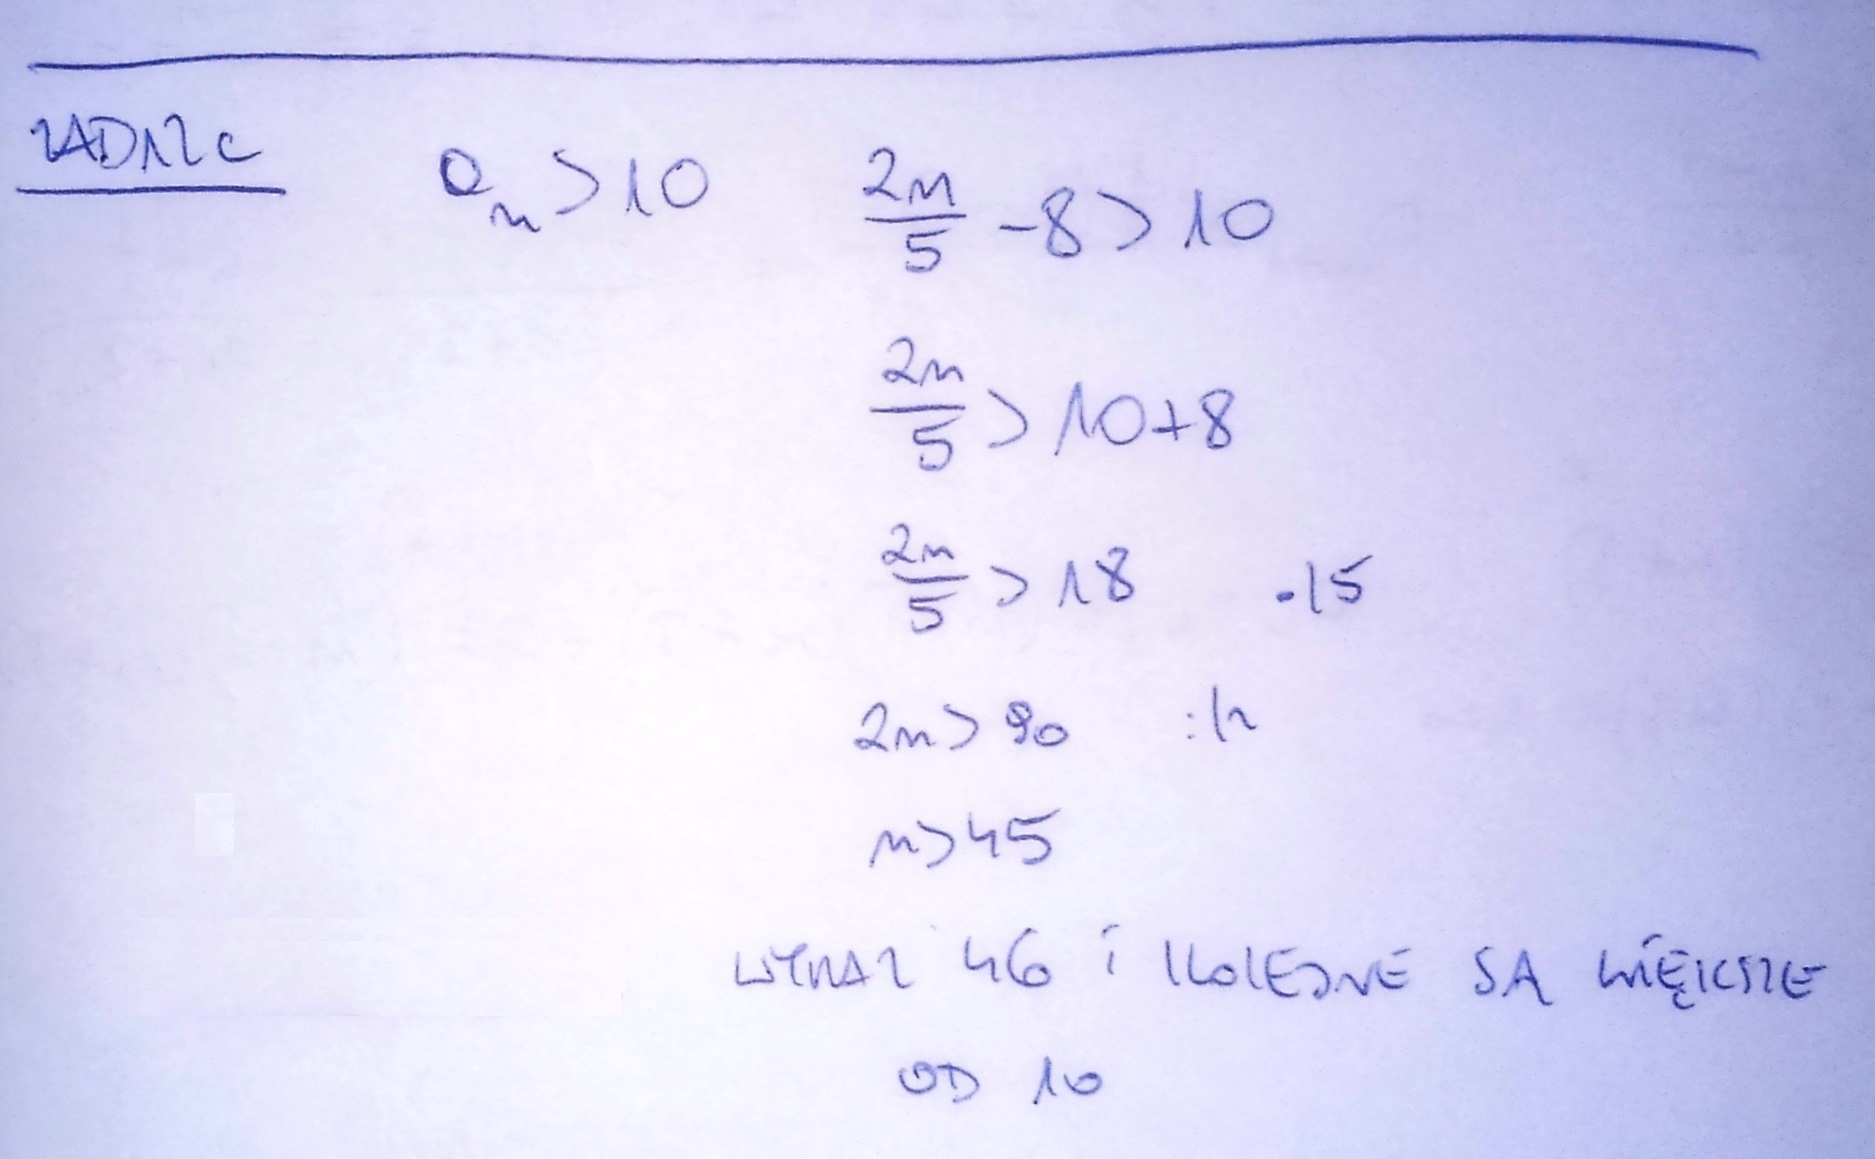 ZAD12c a_n > 10 2n/5 - 8 > 10
2n/5 > 10+8
2n/5 > 18 ·|5
2n > 90 :|2
n > 45
WYRAZ 46 i KOLEJNE SĄ WIĘKSZE
OD 10